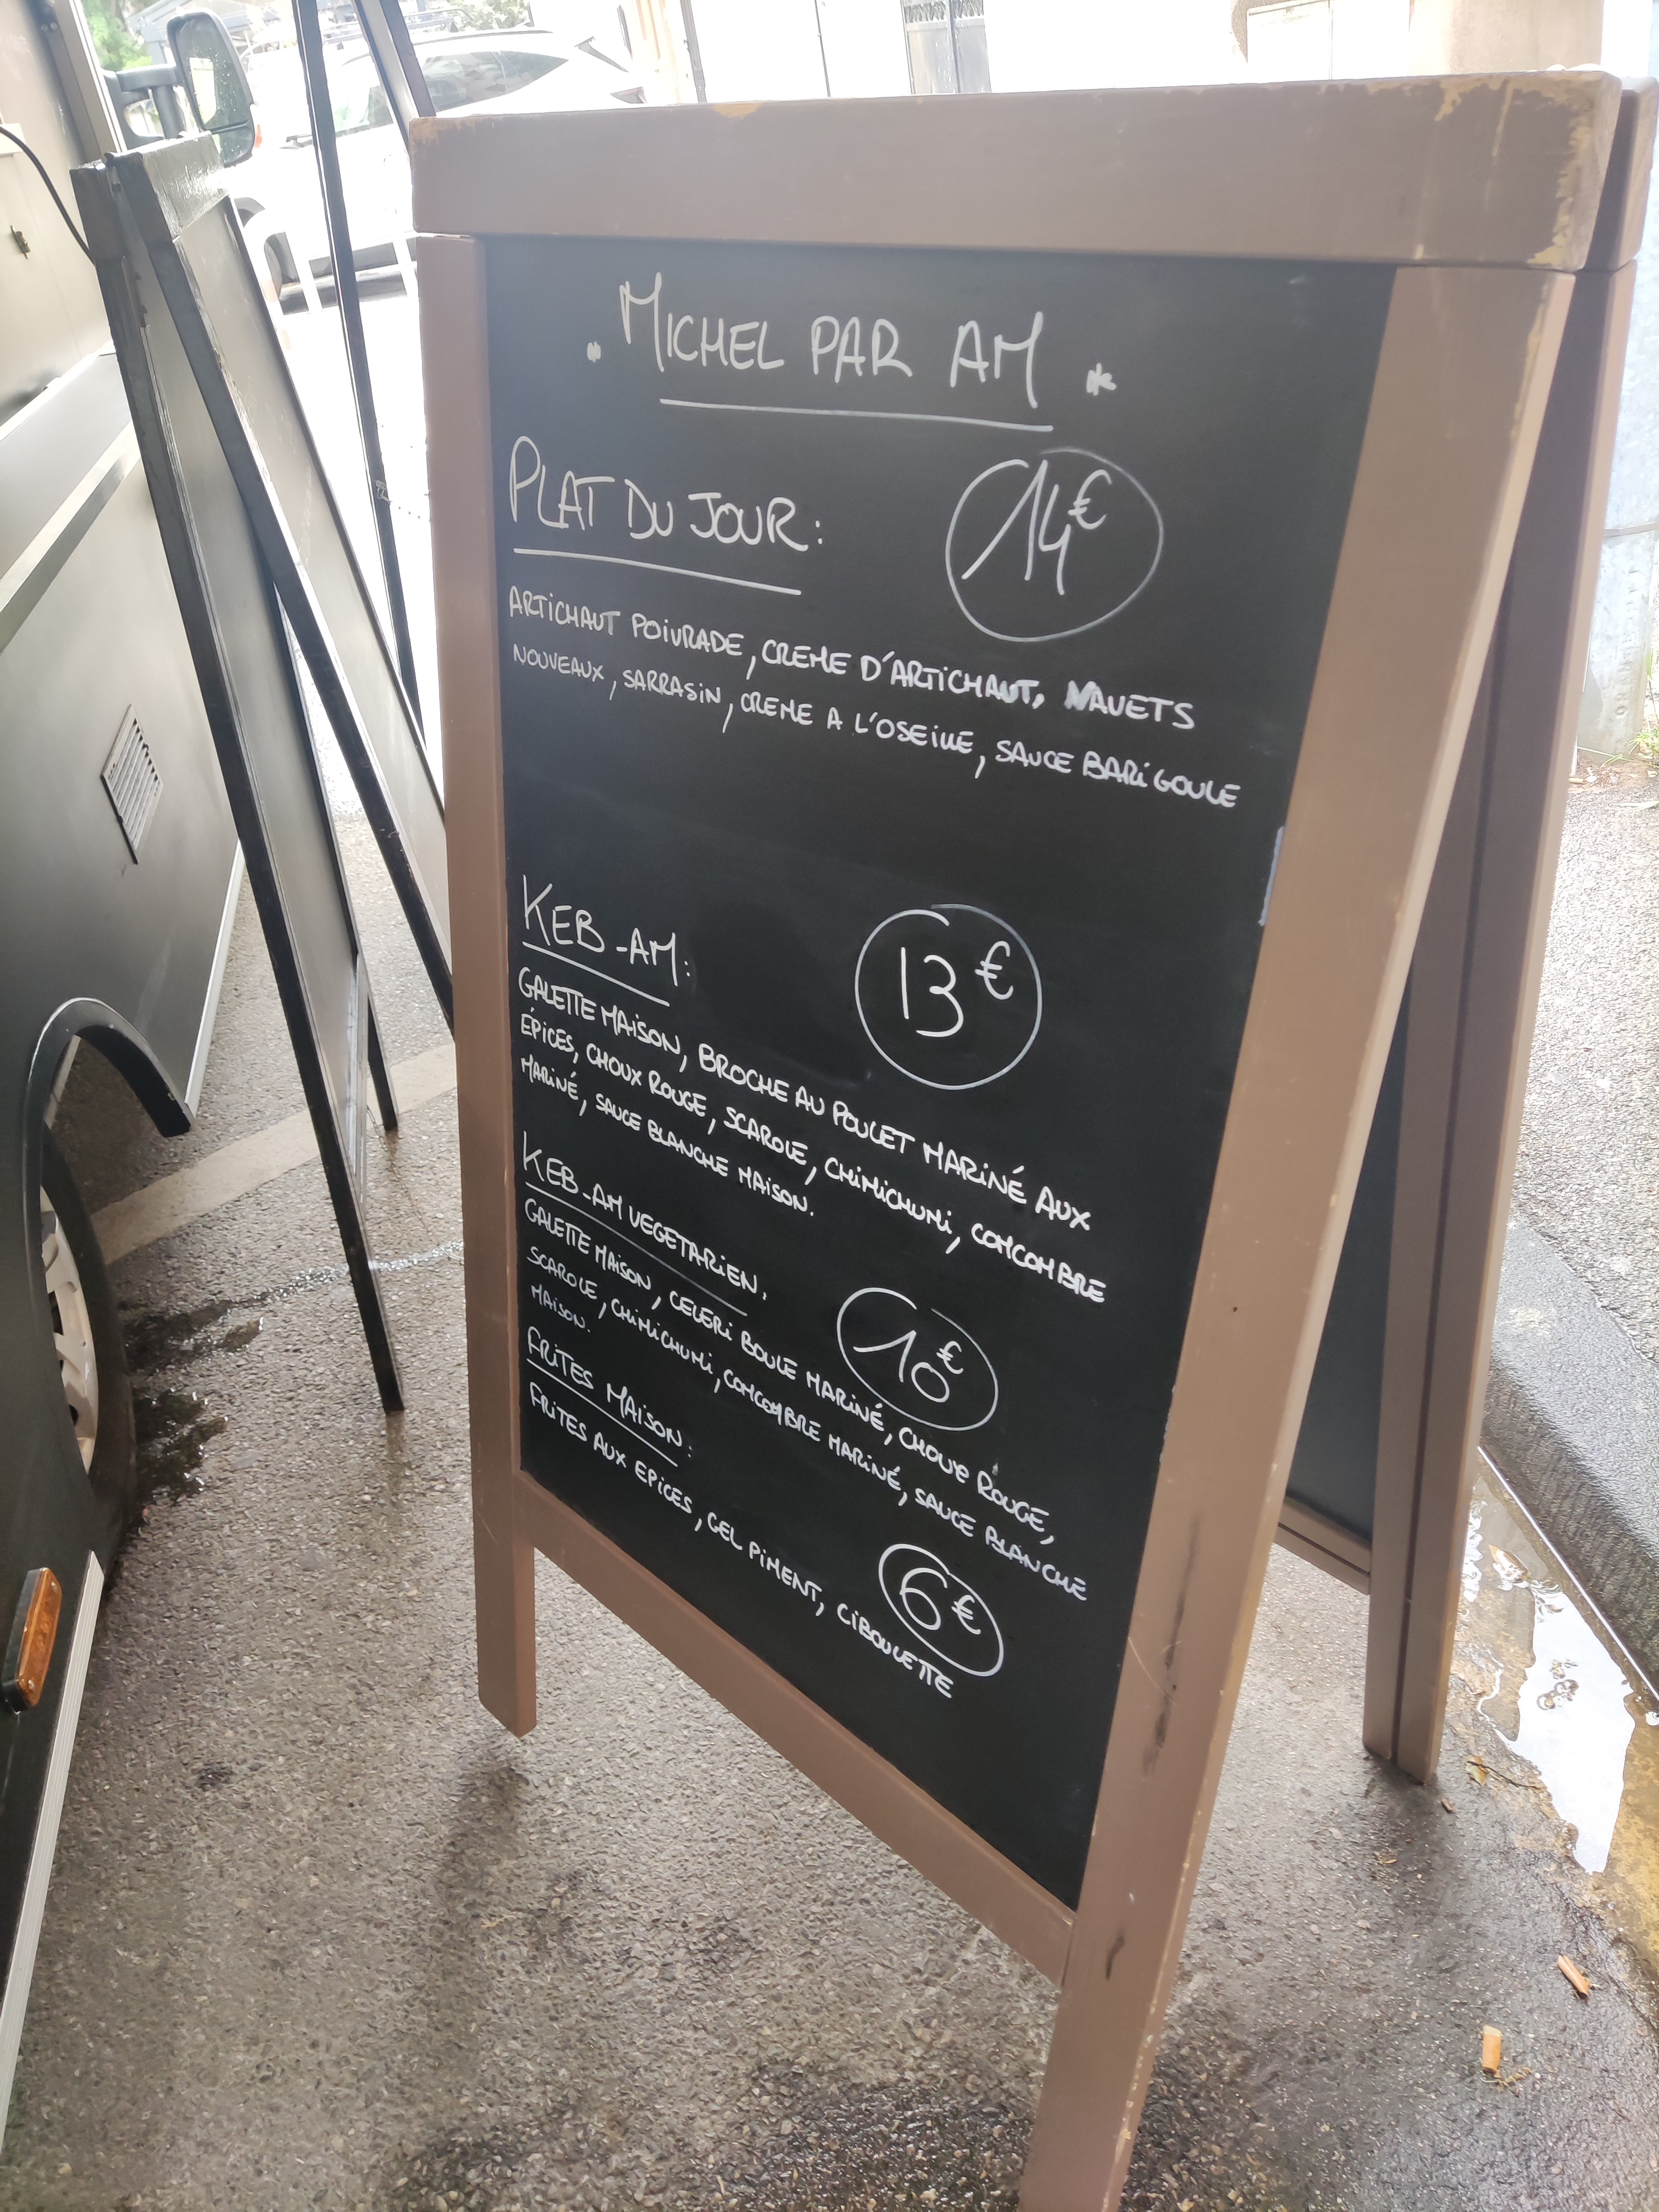 * MICHEL PAR AM *
PLAT DU JOUR: 14€
ARTICHAUT POIVRADE, CREME D'ARTICHAUT, NAVETS
NOUVEAUX, SARRASIN, CREME A L'OSEILLE, SAUCE BARIGOULE
KEB-AM: 13€
GALETTE MAISON, BROCHE AU POULET MARINÉ AUX
ÉPICES, CHOUX ROUGE, SCAROLE, CHIMICHURI, CONCOMBRE
MARINÉ, SAUCE BLANCHE MAISON.
KEB-AM VEGETARIEN. 10€
GALETTE MAISON, CELERI BOULE MARINÉ, CHOUX ROUGE,
SCAROLE, CHIMICHURI, CONCOMBRE MARINÉ, SAUCE BLANCHE
MAISON.
FRITES MAISON: 6€
FRITES AUX EPICES, GEL PIMENT, CIBOULETTE